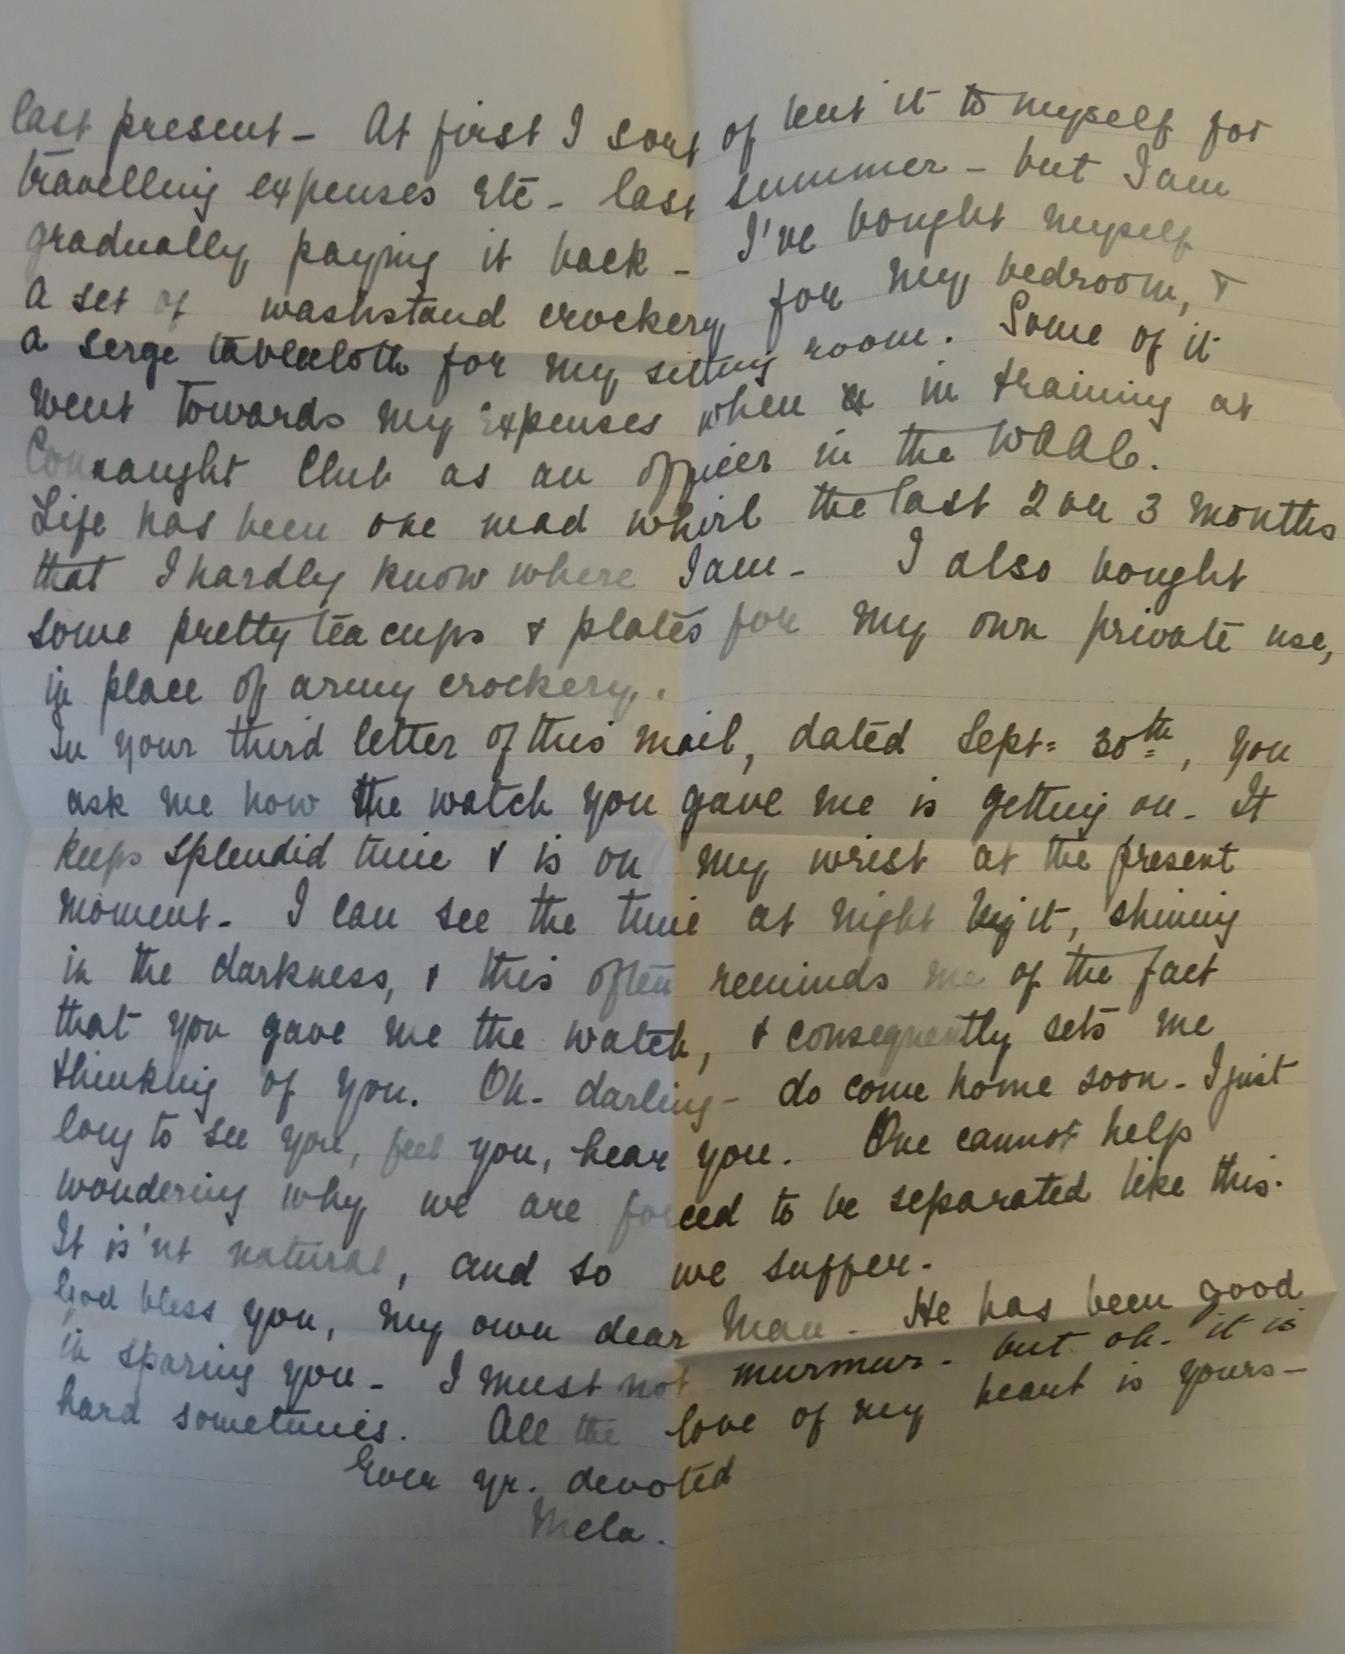 last present - At first I sort of lent it to myself for
travelling expenses etc - last summer - but I am
gradually paying it back - I've bought myself
a set of washstand crockery for my bedroom, &
a serge tablecloth for my sitting room. Some of it
went towards my expenses when in training at
Connaught Club as an officer in the WAAC.
Life has been one mad whirl the last 2 or 3 months
that I hardly know where I am - I also bought
some pretty tea cups & plates for my own private use,
in place of army crockery.
In your third letter of this mail, dated Sept= 30th, you
ask me how the watch you gave me is getting on - It
keeps splendid time & is on my wrist at the present
moment - I can see the time at night by it, shining
in the darkness, & this often reminds me of the fact
that you gave me the watch, & consequently sets me
thinking of you. Oh - darling - do come home soon - I just
long to see you, feel you, hear you. One cannot help
wondering why we are forced to be separated like this.
It is'nt natural, and so we suffer -
God bless you, my own dear Man - He has been good
in sparing you - I must not murmur - but oh - it is
hard sometimes. All the love of my heart is yours -
Ever yr. devoted
Mela.